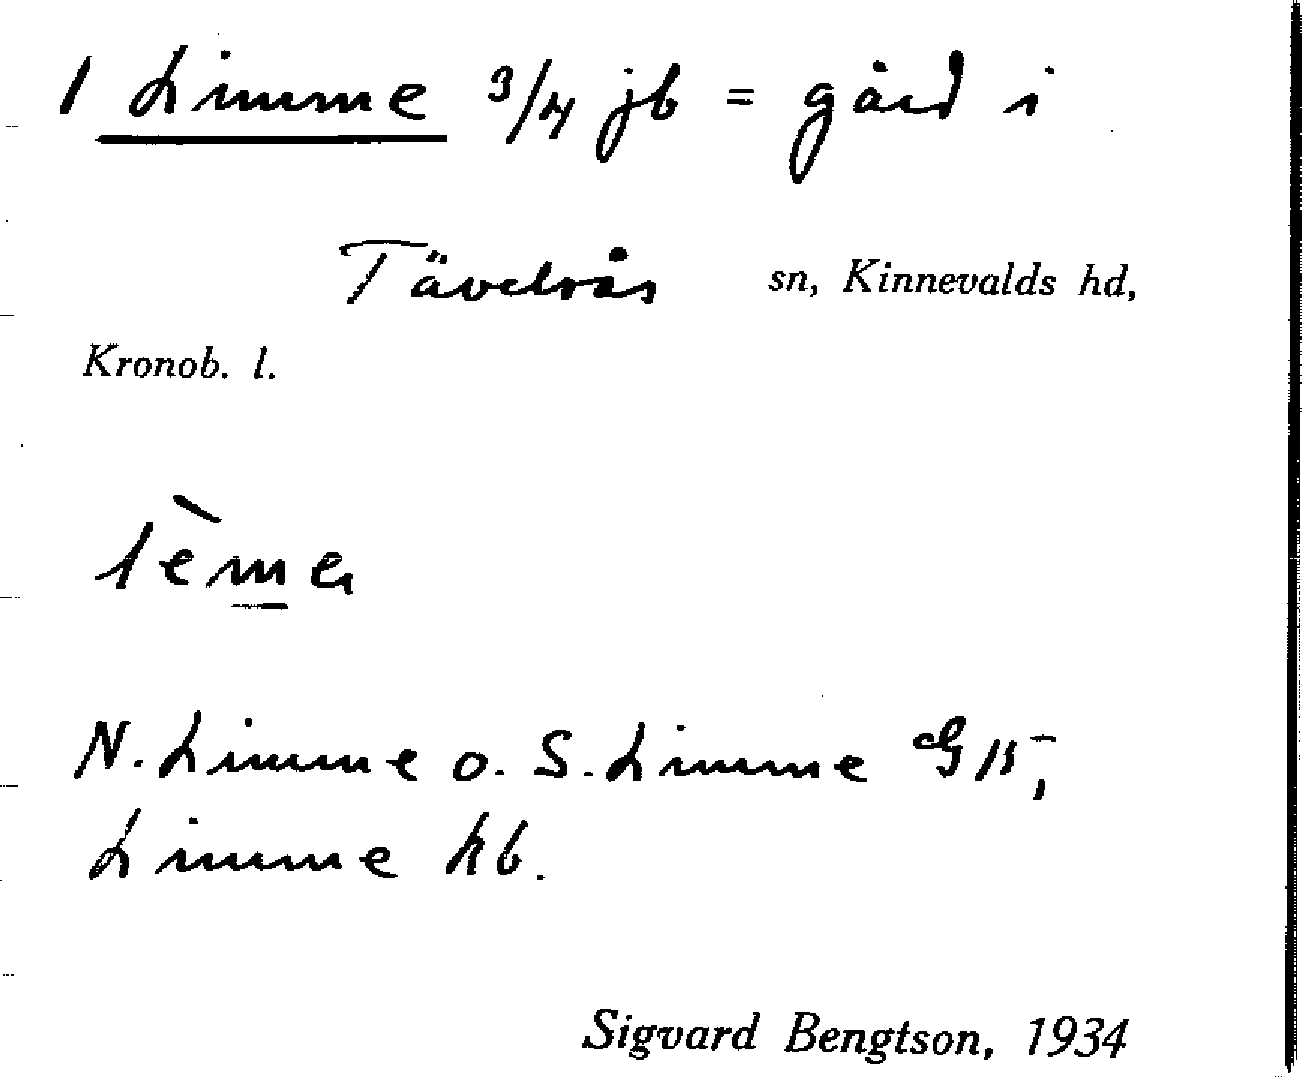 1 Limme 3/4 jb = gård i
Tävelsås sn, Kinnevalds hd,
Kronob. l.
lèmə
N. Limme o. S. Limme G 15,
Limme hb.
Sigvard Bengtson, 1934